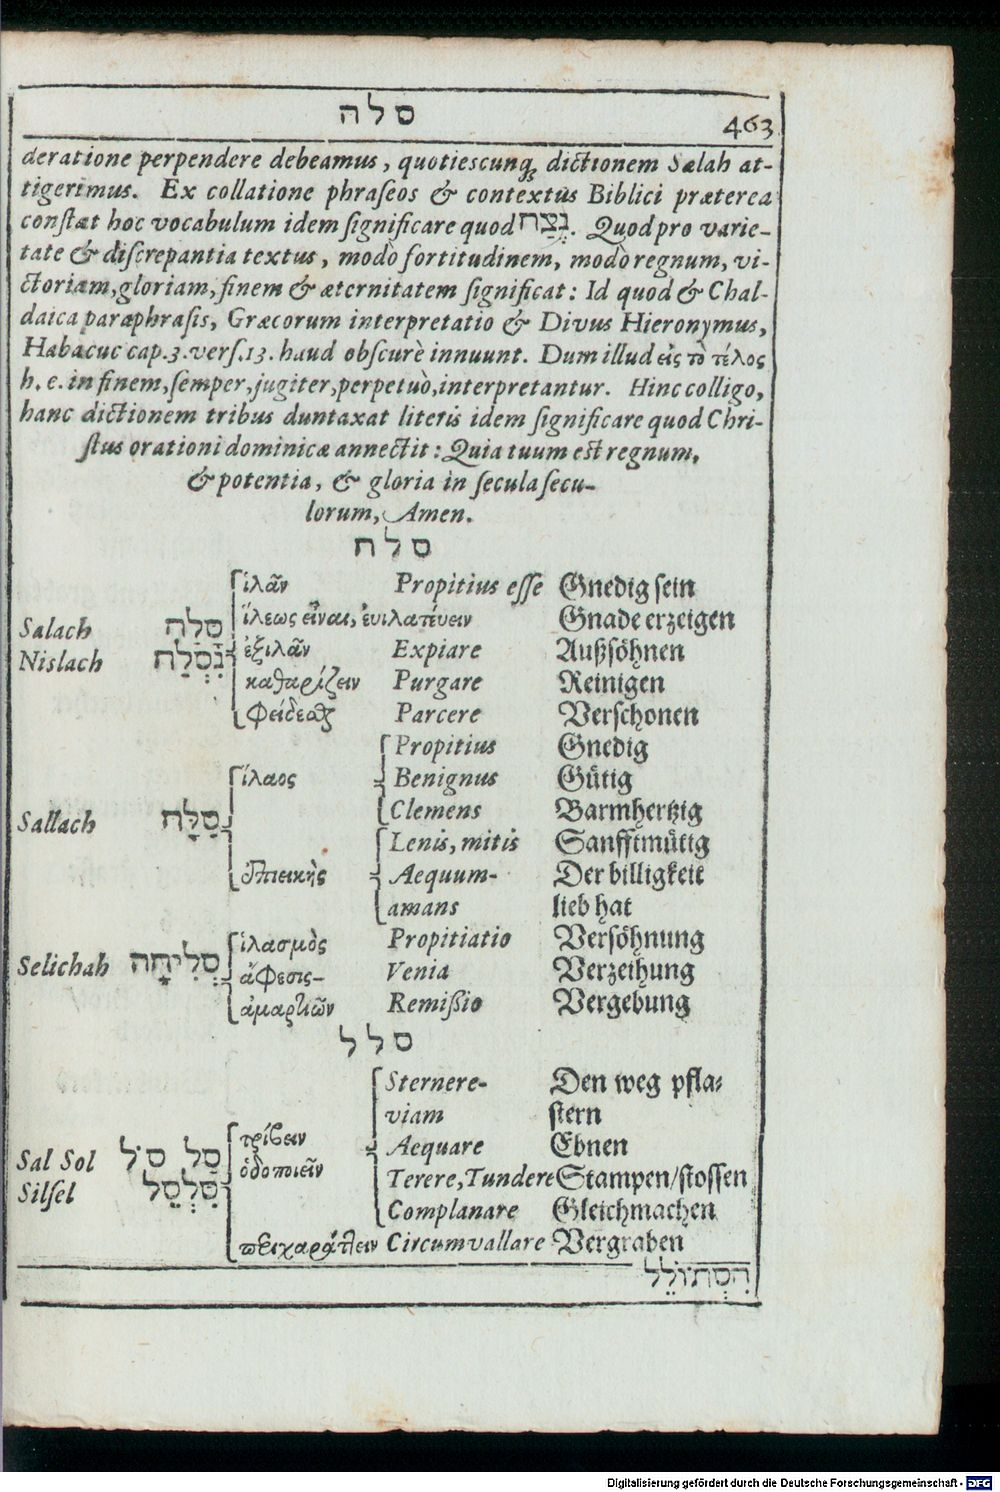 סלה
463
deratione perpendere debeamus, quotiescunq; dictionem Sælah at-
tigerimus. Ex collatione phraseos & contextus Biblici præterea
constat hoc vocabulum idem significare quod נֶצַח. Quod pro varie-
tate & discrepantia textus, modò fortitudinem, modò regnum, vi-
ctoriam, gloriam, finem & æternitatem significat: Id quod & Chal-
daica paraphrasis, Græcorum interpretatio & Divus Hieronymus,
Habacuc cap. 3. vers. 13. haud obscurè innuunt. Dum illud εἰς τὸ τέλος
h. e. in finem, semper, jugiter, perpetuò, interpretantur. Hinc colligo,
hanc dictionem tribus duntaxat literis idem significare quod Chri-
stus orationi dominicæ annectit: Quia tuum est regnum,
& potentia, & gloria in secula secu-
lorum, Amen.
סלח
ἱλᾶν Propitius esse Gnedig sein
Salach סָלַח ἵλεως εἶναι, ἐυιλατέυειν Gnade erzeigen
Nislach נִסְלַח ἐξιλᾶν Expiare Außsöhnen
καθαρίζειν Purgare Reinigen
φείδεσθαι Parcere Verschonen
Propitius Gnedig
ἵλαος Benignus Gütig
Sallach סַלָּח Clemens Barmhertzig
Lenis, mitis Sanfftmütig
ἐπιεικὴς Aequum- Der billigkeit
amans lieb hat
ἱλασμὸς Propitiatio Versöhnung
Selichah סְלִיחָה ἄφεσις- Venia Verzeihung
ἁμαρτιῶν Remißio Vergebung
סלל
Sternere- Den weg pfla-
viam stern
τρίβειν Aequare Ebnen
Sal Sol סַל סֹל ὁδοποιεῖν Terere, Tundere Stampen/stossen
Silsel סִלְסֵל Complanare Gleichmachen
περιχαράττειν Circumvallare Vergraben
הִסְתּוֹלֵל
Digitalisierung gefördert durch die Deutsche Forschungsgemeinschaft - DFG